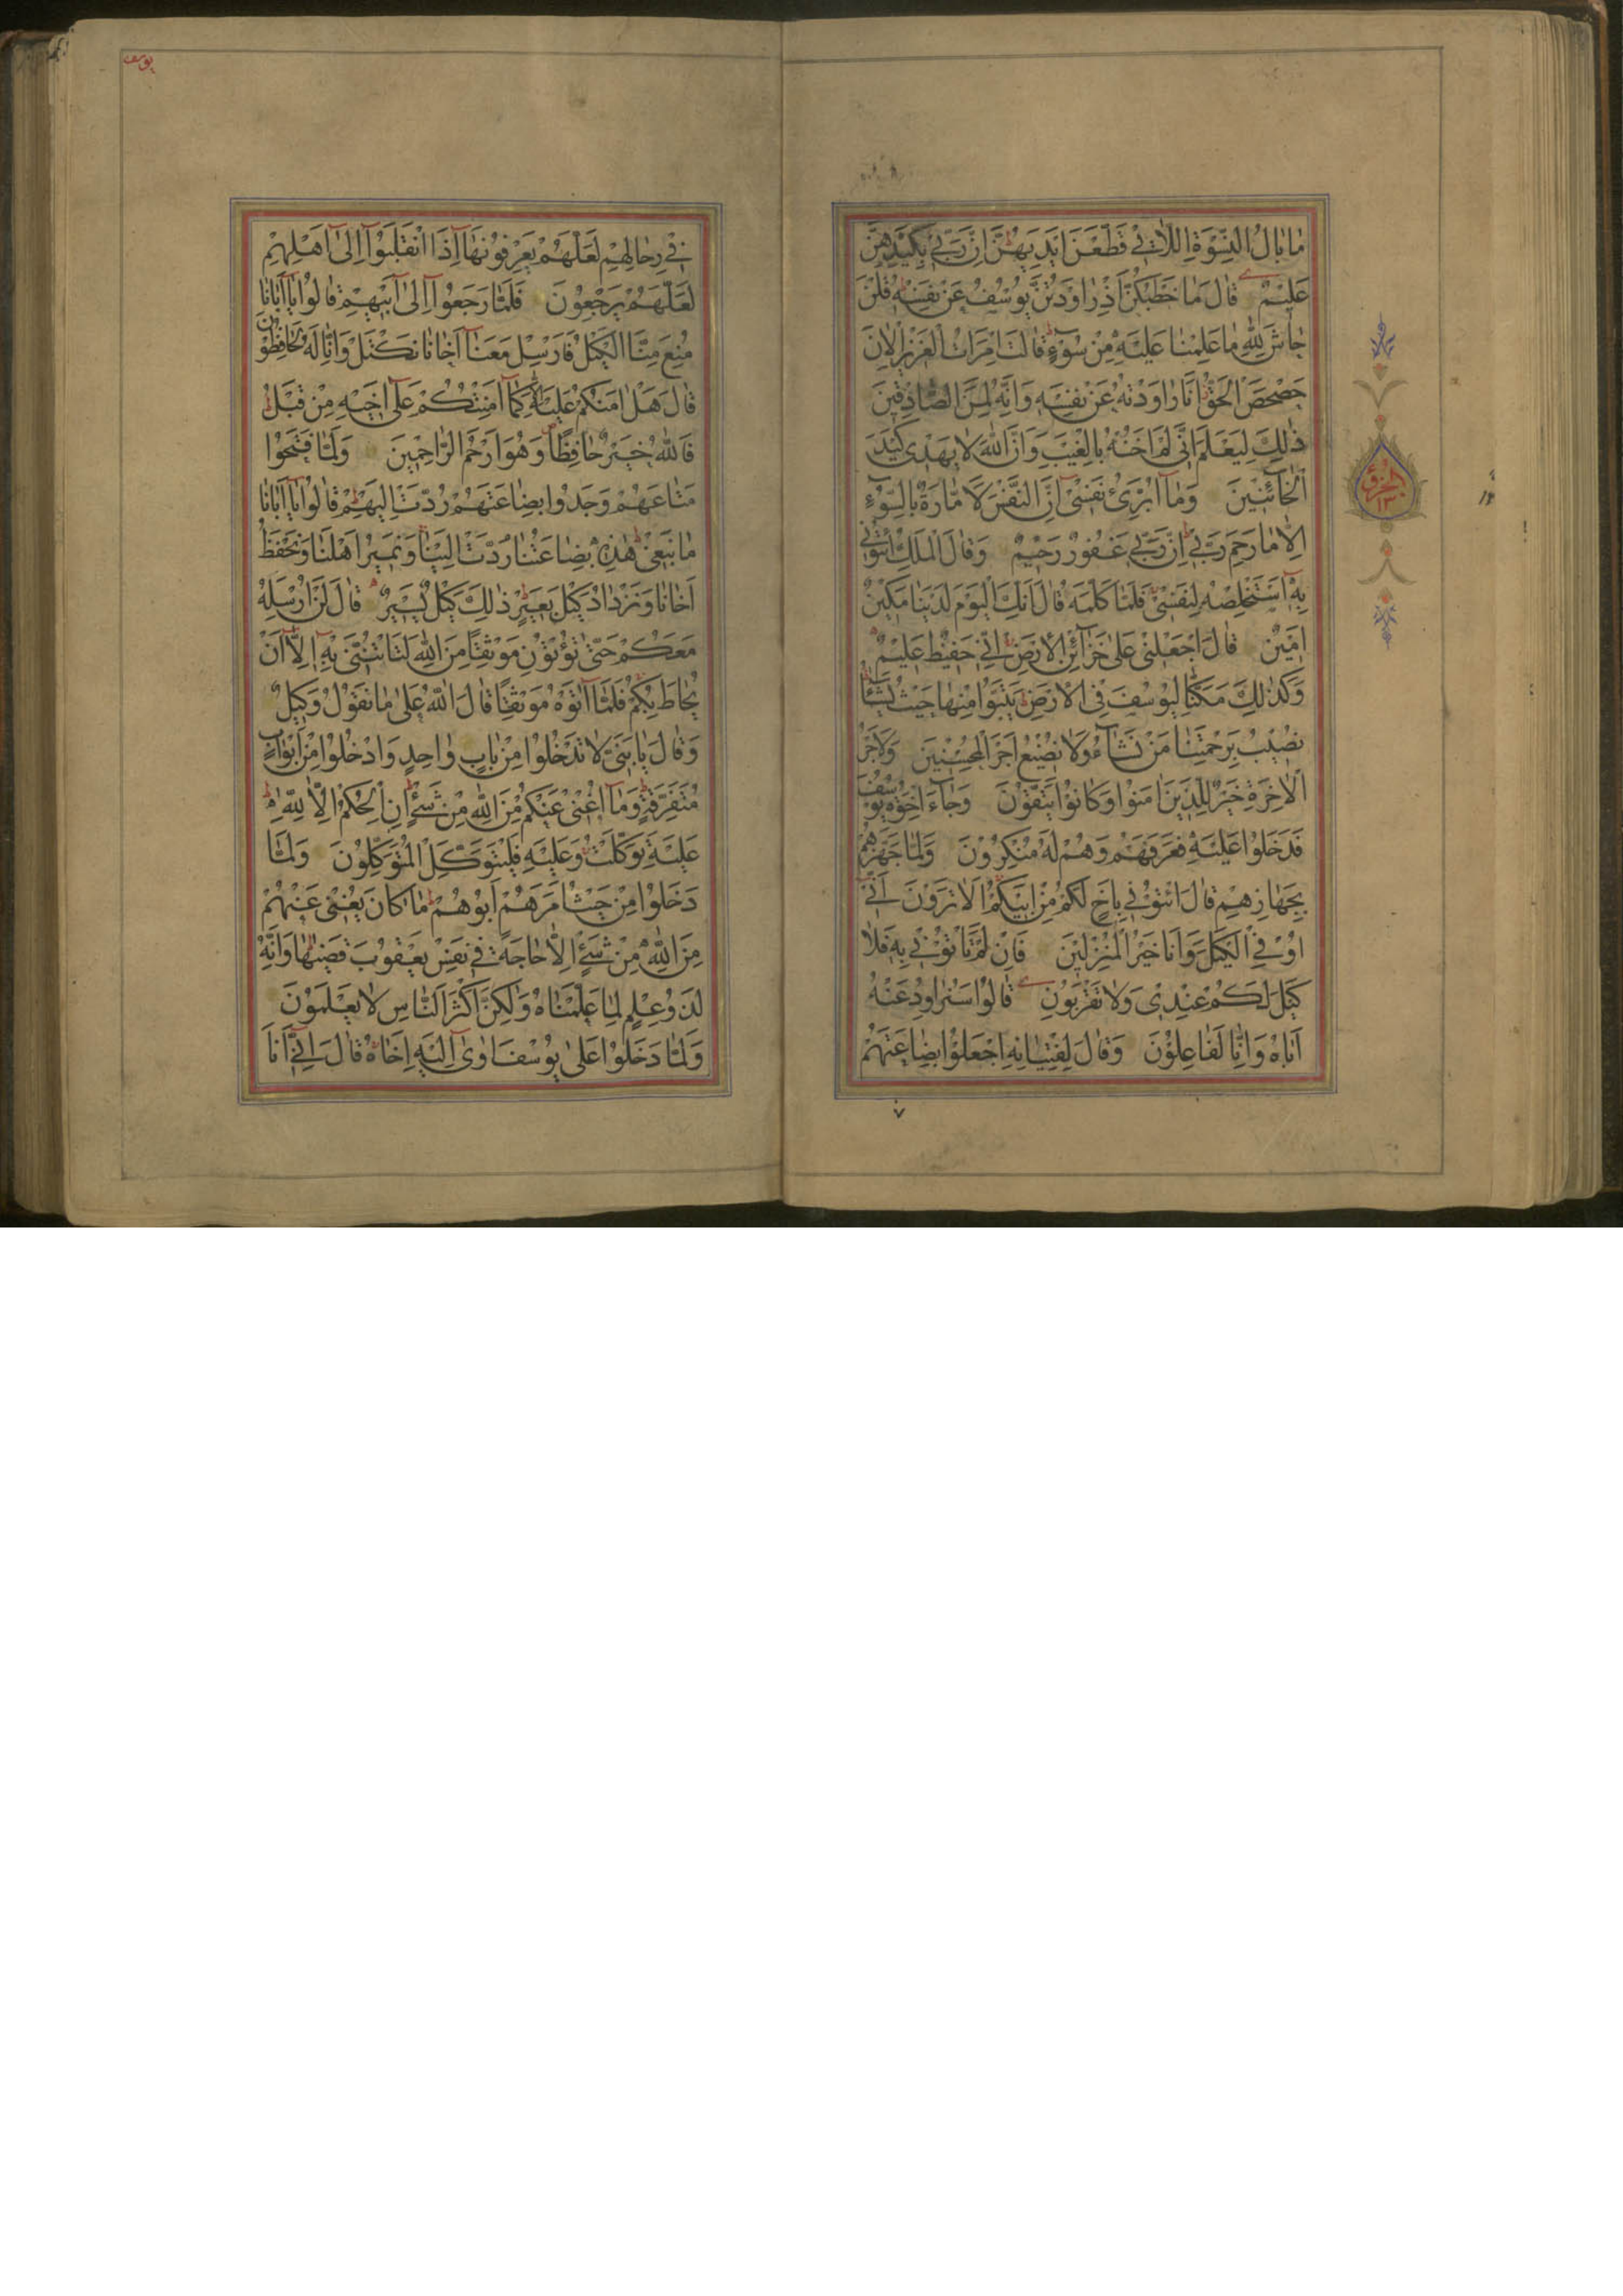 مٰا بٰالُ النِّسْوَةِ اللّٰاتي قَطَّعْنَ اَيْدِيَهُنَّ اِنَّ رَبّي بِكَيْدِهِنَّ
عَليٖمٌ قٰالَ مٰا خَطْبُكُنَّ اِذْ رٰاوَدْتُنَّ يُوسُفَ عَنْ نَفْسِهٖ قُلْنَ
حٰاشَ لِلّٰهِ مٰا عَلِمْنٰا عَلَيْهِ مِنْ سُوٓءٍ قٰالَتِ امْرَاَتُ الْعَزيٖزِ الْاٰنَ
حَصْحَصَ الْحَقُّ اَنَا رٰاوَدْتُهُ عَنْ نَفْسِهٖ وَاِنَّهُ لَمِنَ الصّٰادِقيٖنَ
ذٰلِكَ لِيَعْلَمَ اَنّي لَمْ اَخُنْهُ بِالْغَيْبِ وَاَنَّ اللّٰهَ لٰا يَهْدي كَيْدَ
الْخٰٓائِنيٖنَ وَمٰٓا اُبَرِّئُ نَفْسيٓ اِنَّ النَّفْسَ لَاَمّٰارَةٌ بِالسُّوٓءِ
اِلّٰا مٰا رَحِمَ رَبّي اِنَّ رَبّي غَفُورٌ رَحيٖمٌ وَقٰالَ الْمَلِكُ ائْتُوني
بِهٖٓ اَسْتَخْلِصْهُ لِنَفْسي فَلَمّٰا كَلَّمَهُ قٰالَ اِنَّكَ الْيَوْمَ لَدَيْنٰا مَكيٖنٌ
اَميٖنٌ قٰالَ اجْعَلْني عَلىٰ خَزٰٓائِنِ الْاَرْضِ اِنّي حَفيٖظٌ عَليٖمٌ
وَكَذٰلِكَ مَكَّنّٰا لِيُوسُفَ فِي الْاَرْضِ يَتَبَوَّاُ مِنْهٰا حَيْثُ يَشٰٓاءُ
نُصيٖبُ بِرَحْمَتِنٰا مَنْ نَشٰٓاءُ وَلٰا نُضيٖعُ اَجْرَ الْمُحْسِنيٖنَ وَلَاَجْرُ
الْاٰخِرَةِ خَيْرٌ لِلَّذيٖنَ اٰمَنُوا وَكٰانُوا يَتَّقُونَ وَجٰٓاءَ اِخْوَةُ يُوسُفَ
فَدَخَلُوا عَلَيْهِ فَعَرَفَهُمْ وَهُمْ لَهُ مُنْكِرُونَ وَلَمّٰا جَهَّزَهُمْ
بِجَهٰازِهِمْ قٰالَ ائْتُوني بِاَخٍ لَكُمْ مِنْ اَبيٖكُمْ اَلٰا تَرَوْنَ اَنّيٓ
اُوفِي الْكَيْلَ وَاَنَا خَيْرُ الْمُنْزِليٖنَ فَاِنْ لَمْ تَاْتُوني بِهٖ فَلٰا
كَيْلَ لَكُمْ عِنْدي وَلٰا تَقْرَبُونِ قٰالُوا سَنُرٰاوِدُ عَنْهُ
اَبٰاهُ وَاِنّٰا لَفٰاعِلُونَ وَقٰالَ لِفِتْيٰانِهِ اجْعَلُوا بِضٰاعَتَهُمْ
٧
الجزؤ
١٣
يوسف
فيٖ رِحٰالِهِمْ لَعَلَّهُمْ يَعْرِفُونَهٰٓا اِذَا انْقَلَبُوٓا اِلىٰٓ اَهْلِهِمْ
لَعَلَّهُمْ يَرْجِعُونَ فَلَمّٰا رَجَعُوٓا اِلىٰٓ اَبيٖهِمْ قٰالُوا يٰٓا اَبٰانٰا
مُنِعَ مِنَّا الْكَيْلُ فَاَرْسِلْ مَعَنٰٓا اَخٰانٰا نَكْتَلْ وَاِنّٰا لَهُ لَحٰافِظُونَ
قٰالَ هَلْ اٰمَنُكُمْ عَلَيْهِ اِلّٰا كَمٰٓا اَمِنْتُكُمْ عَلىٰٓ اَخيٖهِ مِنْ قَبْلُ
فَاللّٰهُ خَيْرٌ حٰافِظًا وَهُوَ اَرْحَمُ الرّٰاحِميٖنَ وَلَمّٰا فَتَحُوا
مَتٰاعَهُمْ وَجَدُوا بِضٰاعَتَهُمْ رُدَّتْ اِلَيْهِمْ قٰالُوا يٰٓا اَبٰانٰا
مٰا نَبْغي هٰذِهٖ بِضٰاعَتُنٰا رُدَّتْ اِلَيْنٰا وَنَميٖرُ اَهْلَنٰا وَنَحْفَظُ
اَخٰانٰا وَنَزْدٰادُ كَيْلَ بَعيٖرٍ ذٰلِكَ كَيْلٌ يَسيٖرٌ قٰالَ لَنْ اُرْسِلَهُ
مَعَكُمْ حَتّىٰ تُؤْتُونِ مَوْثِقًا مِنَ اللّٰهِ لَتَاْتُنَّني بِهٖٓ اِلّٰٓا اَنْ
يُحٰاطَ بِكُمْ فَلَمّٰٓا اٰتَوْهُ مَوْثِقَهُمْ قٰالَ اللّٰهُ عَلىٰ مٰا نَقُولُ وَكيٖلٌ
وَقٰالَ يٰا بَنِيَّ لٰا تَدْخُلُوا مِنْ بٰابٍ وٰاحِدٍ وَادْخُلُوا مِنْ اَبْوٰابٍ
مُتَفَرِّقَةٍ وَمٰٓا اُغْني عَنْكُمْ مِنَ اللّٰهِ مِنْ شَيْءٍ اِنِ الْحُكْمُ اِلّٰا لِلّٰهِ
عَلَيْهِ تَوَكَّلْتُ وَعَلَيْهِ فَلْيَتَوَكَّلِ الْمُتَوَكِّلُونَ وَلَمّٰا
دَخَلُوا مِنْ حَيْثُ اَمَرَهُمْ اَبُوهُمْ مٰا كٰانَ يُغْني عَنْهُمْ
مِنَ اللّٰهِ مِنْ شَيْءٍ اِلّٰا حٰاجَةً في نَفْسِ يَعْقُوبَ قَضٰيهٰا وَاِنَّهُ
لَذُو عِلْمٍ لِمٰا عَلَّمْنٰاهُ وَلٰكِنَّ اَكْثَرَ النّٰاسِ لٰا يَعْلَمُونَ
وَلَمّٰا دَخَلُوا عَلىٰ يُوسُفَ اٰوىٰٓ اِلَيْهِ اَخٰاهُ قٰالَ اِنّيٓ اَنَا